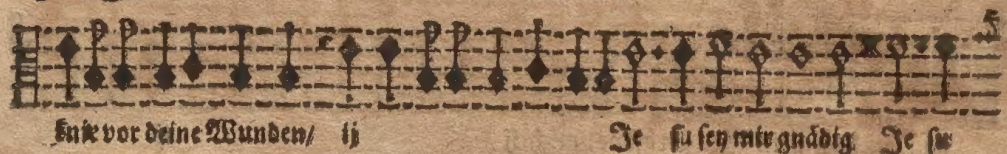 5
knie vor deine Wunden/ ij Je su sey mir gnädig Je su